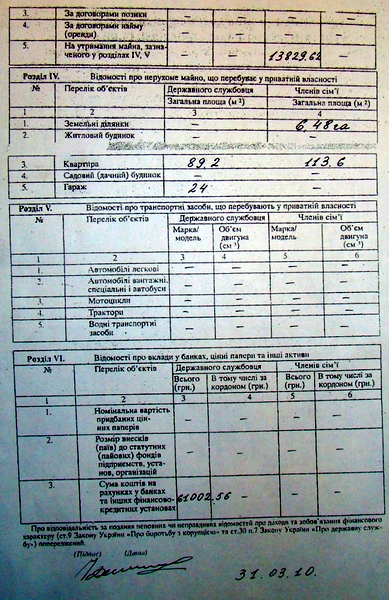 3. За договорами позики — — — —
4. За договорами найму (оренди) — — — —
5. На утримання майна, зазначеного у розділах IV, V — — 13829.62 —
Розділ IV. Відомості про нерухоме майно, що перебуває у приватній власності
№ Перелік об'єктів Державного службовця Членів сім'ї
Загальна площа (м ²) Загальна площа (м ²)
1 2 3 4
1. Земельні ділянки — 6,48га
2. Житловий будинок
3. Квартира 89.2 113.6
4. Садовий (дачний) будинок — —
5. Гараж 24 —
Розділ V. Відомості про транспортні засоби, що перебувають у приватній власності
№ Перелік об'єктів Державного службовця Членів сім'ї
Марка/модель Об'єм двигуна (см ³) Марка/модель Об'єм двигуна (см ³)
1 2 3 4 5 6
1. Автомобілі легкові — — — —
2. Автомобілі вантажні, спеціальні і автобуси — — — —
3. Мотоцикли — — — —
4. Трактори — — — —
5. Водні транспортні засоби — — — —
Розділ VI. Відомості про вклади у банках, цінні папери та інші активи
№ Перелік об'єктів Державного службовця Членів сім'ї
Всього (грн.) В тому числі за кордоном (грн.) Всього (грн.) В тому числі за кордоном (грн.)
1 2 3 4 5 6
1. Номінальна вартість придбаних цінних паперів — — — —
2. Розмір внесків (паїв) до статутних (пайових) фондів підприємств, установ, організацій — — — —
3. Сума коштів на рахунках у банках та інших фінансово-кредитних установах 61002.56 — — —
Про відповідальність за подання неповних чи неправдивих відомостей про доходи та зобов'язання фінансового
характеру (ст.9 Закону України «Про боротьбу з корупцією» та ст.30 п.7 Закону України «Про державну служ-
бу») попереджений.
(Підпис) (Дата)
31.03.10.